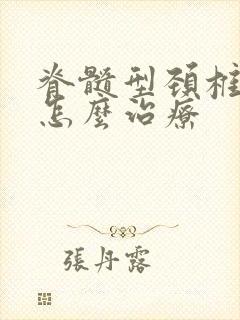 脊髓型頚椎
怎麼治療
張丹露